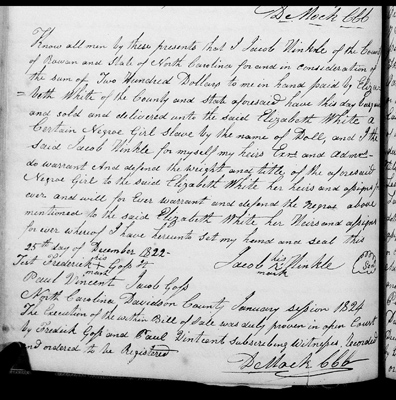 D Mock CCC
Know all men by these presents that I Jacob Hinkle of the County
of Rowan and State of North Carolina for and in consideration of
the sum of Two Hundred Dollars to me in hand paid by Eliza=
beth White of the County and State aforesaid have this day bargained
and sold and delivered unto the said Elizabeth White a
Certain Negroe Girl Slave by the name of Doll, and I the
said Jacob Hinkle for myself my heirs Exr and admr
do warrant And defend the wright and title of the aforesaid
Negroe Girl to the said Elizabeth White her heirs and assigns for
ever and will for Ever warrant and defend the Negroe above
mentioned to the said Elizabeth White her Heirs and assigns
for ever wherof I have hereunto Set my hand and seal this
25th day of December 1822
Test Frederick his mark Goss Jacob his mark Hinkle Seal
Paul Vincent Jacob Goss
North Carolina Davidson County January session 1824
The Execution of the within Bill of Sale was duly proven in open Court
by Fredrick Goss and Paul Vintrent subscribing witness, Recorded
and ordered to be Registered
D Mock CCC